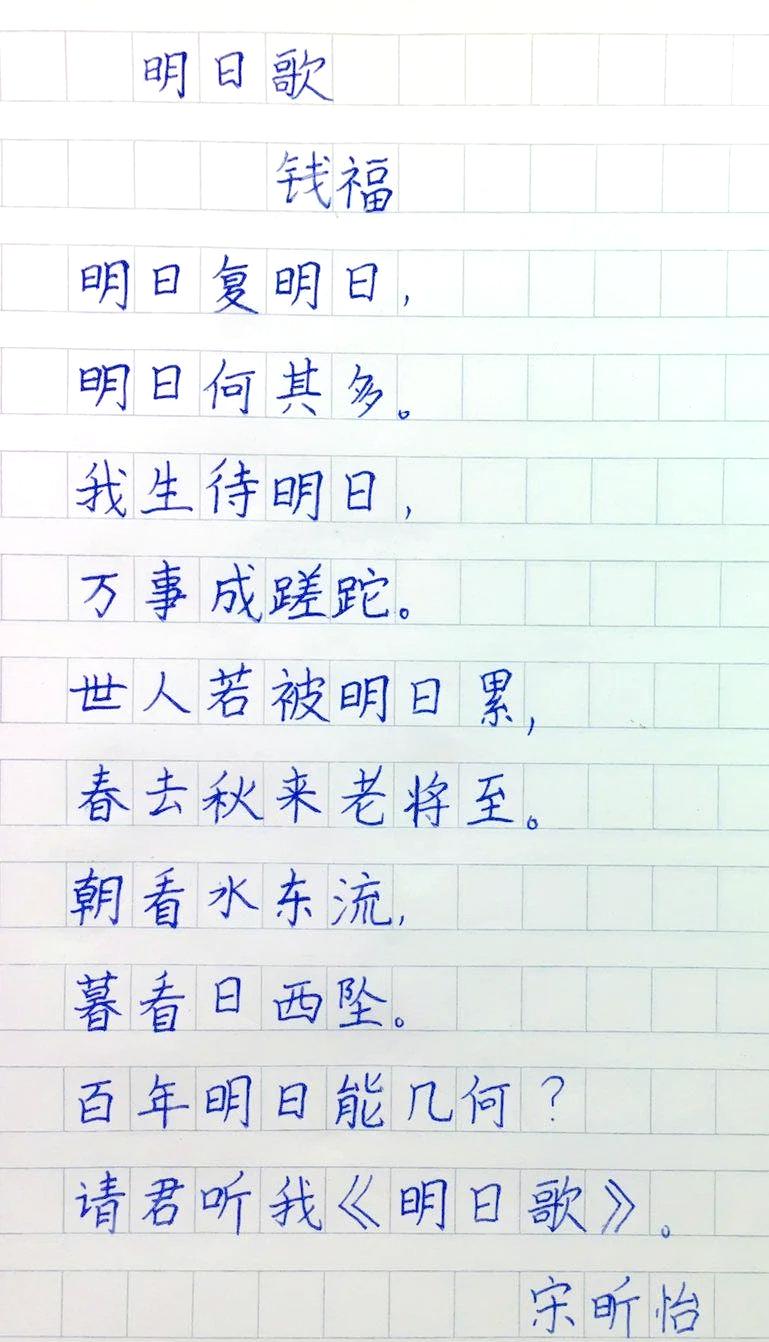 明日歌
钱福
明日复明日,
明日何其多。
我生待明日,
万事成蹉跎。
世人若被明日累,
春去秋来老将至。
朝看水东流,
暮看日西坠。
百年明日能几何?
请君听我《明日歌》。
宋昕怡